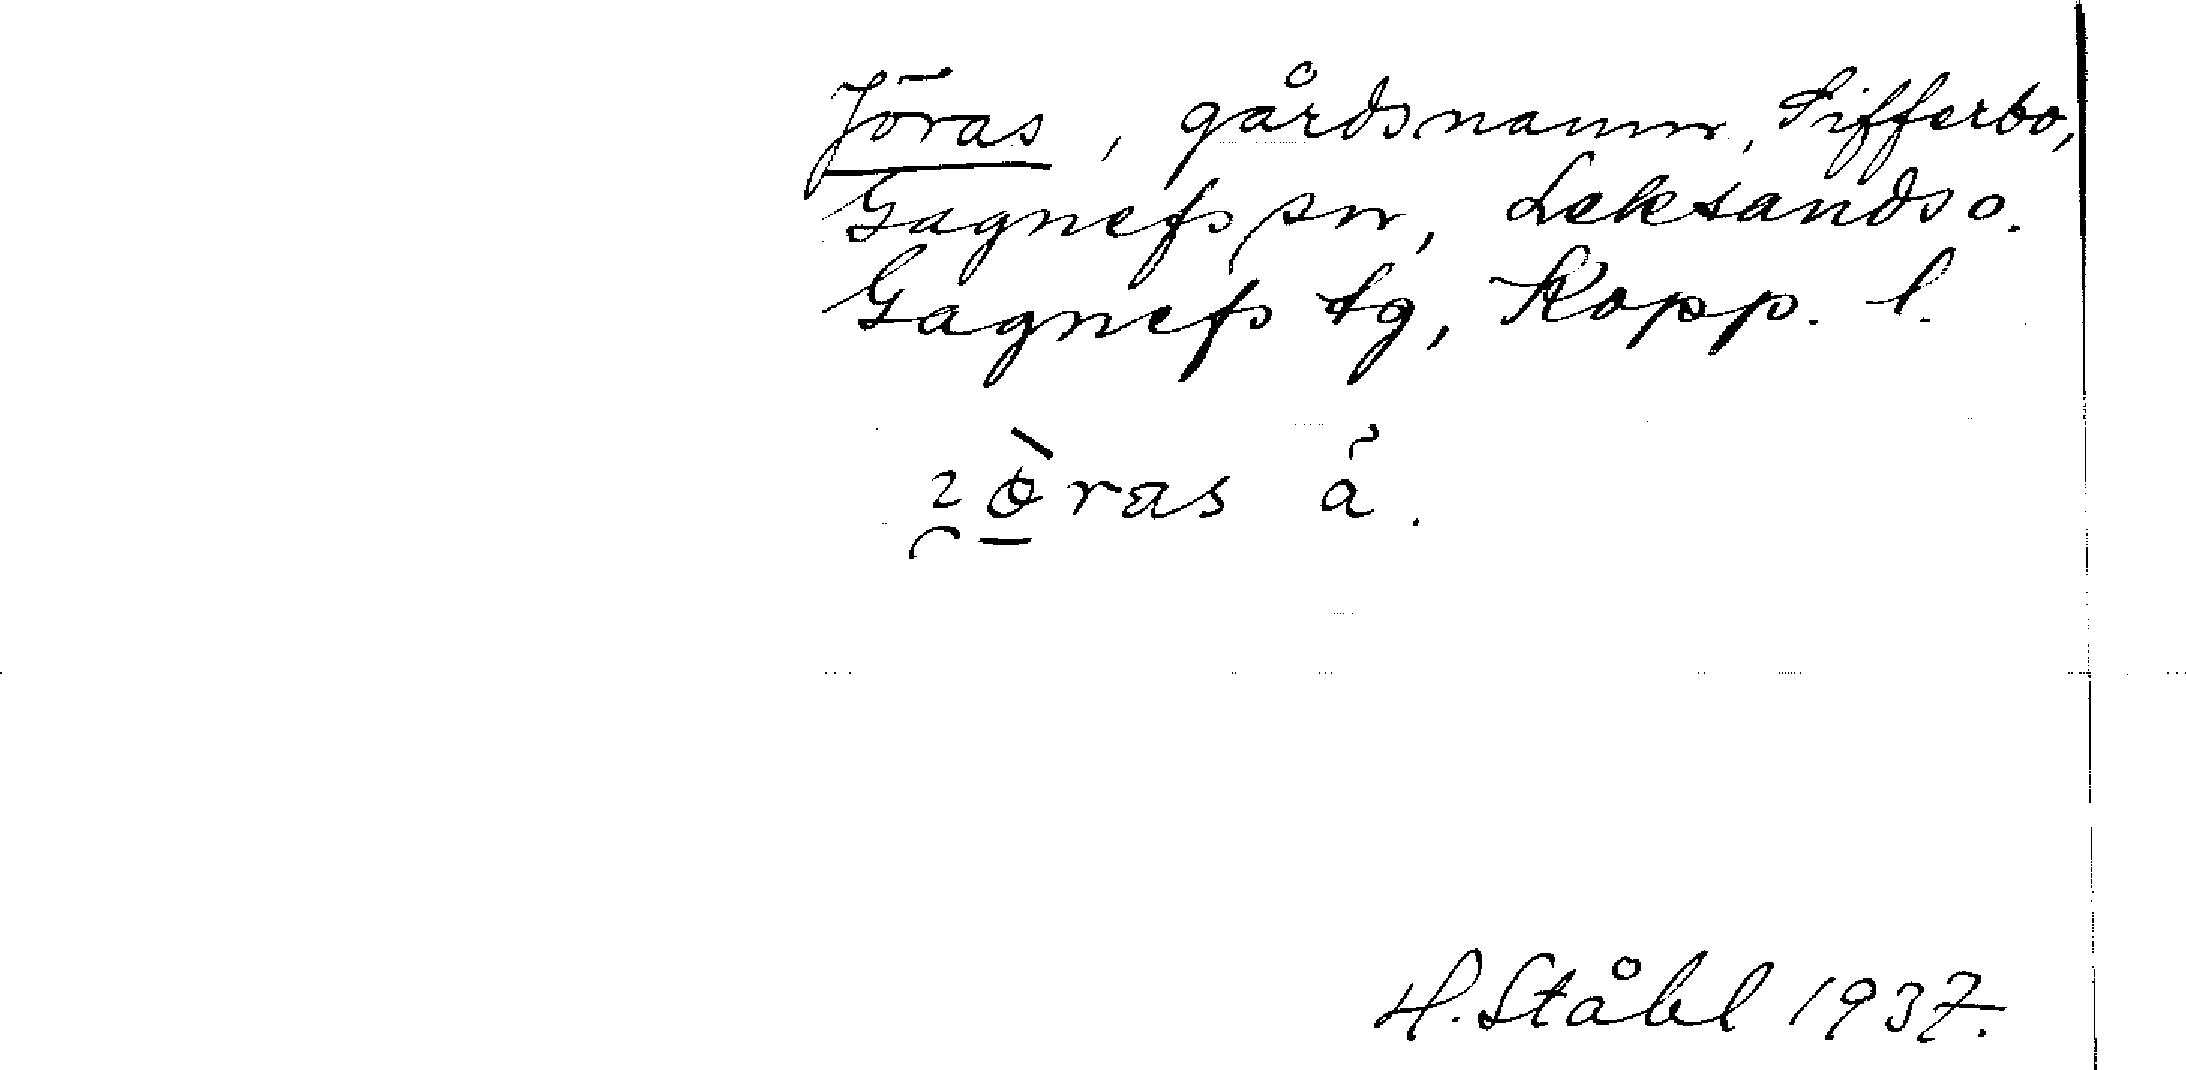 Jöras, gårdsnamn, Sifferbo,
Gagnefs sn, Leksands o.
Gagnefs tg, Kopp. l.
H. Ståhl 1937.